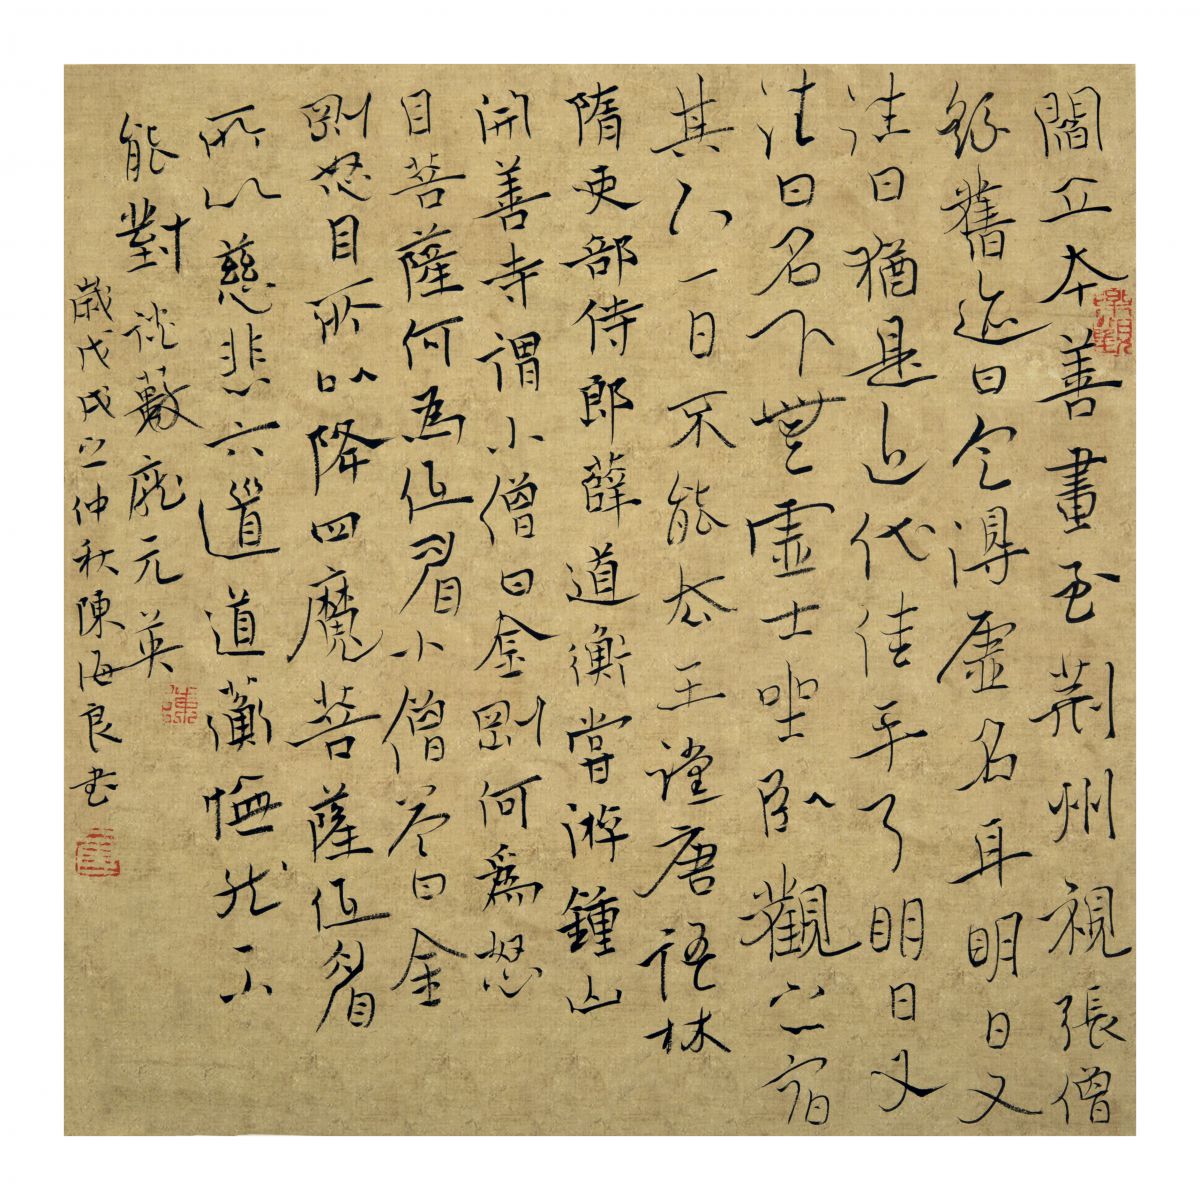 閻立本善畫至荊州視張僧
繇舊迹曰定得虛名耳明日又
往曰猶是近代佳手了明日又
往曰名下無虛士坐臥觀之宿
其下一日不能去王讜唐語林
隋吏部侍郎薛道衡嘗游鍾山
開善寺謂小僧曰金剛何爲怒
目菩薩何為低眉小僧答曰金
剛怒目所以降四魔菩薩低眉
所以慈悲六道道衡憮然不
能對談藪龐元英
歲戊戌之仲秋陳海良書